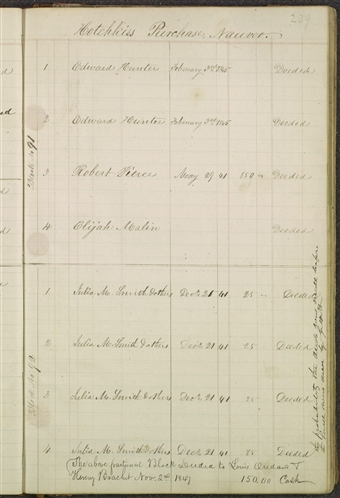 Hotchkiss Purchase, Nauvoo.
Block No 91
1 Edward Hunter February 3rd 1845 Deeded
2 Edward Hunter February 3rd 1845 Deeded
3 Robert Pierce May 29 41 150 Deeded
4 Elijah Malin Deeded
Block No 92
1 Julia M. Smith & others Dec. 21 41 25 Deeded
2 Julia M. Smith & others Dec. 21 41 25 Deeded
3 Julia M. Smith & others Dec. 21 41 25 Deeded
4 Julia M. Smith & others Dec. 21 41 25 Deeded
The above fractional Block Deeded to Louis
Henry Nov. 2nd 1847 150.00 Cash